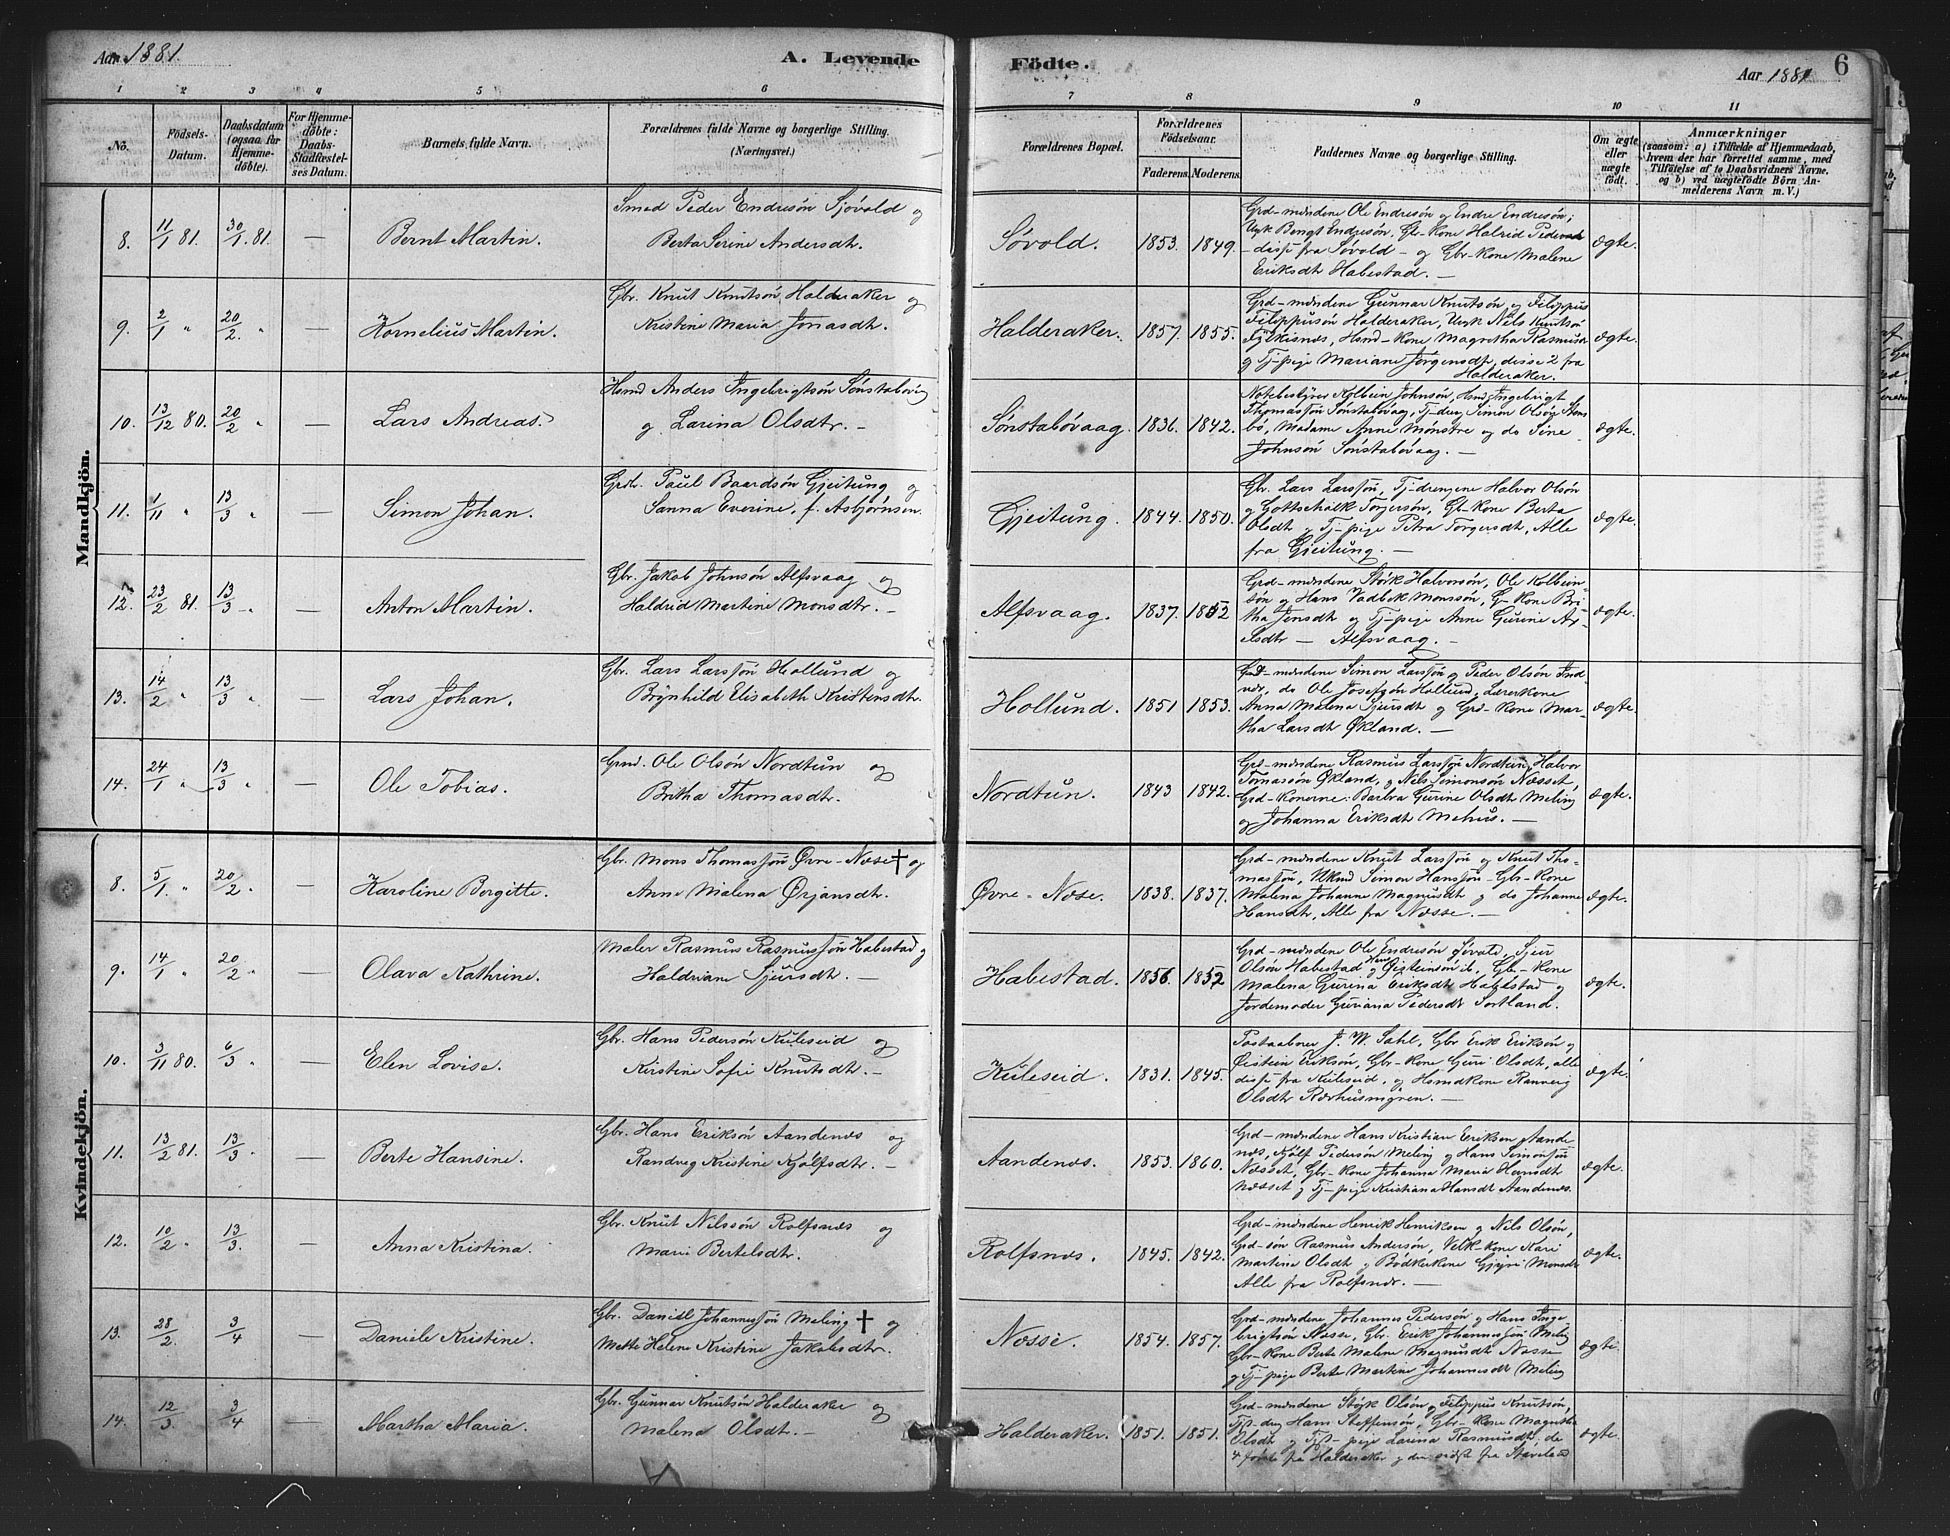 Aar 1881.
A. Levende
Födte.
Aar 1881
6
1 2 3 4 5 6 7 8 9 10 11
No.
Födsels-Datum.
Daabsdatum (ogsaa for Hjemmedöbte).
For Hjemmedöbte: Daabs-Stadfæstelses Datum.
Barnets fulde Navn.
Forældrenes fulde Navne og borgerlige Stilling. (Næringsvei.)
Forældrenes Bopæl.
Forældrenes Födselsaar.
Faderens. Moderens.
Faddernes Navne og borgerlige Stilling.
Om ægte eller uægte födt.
Anmærkninger
(saasom: a) i Tilfælde af Hjemmedaab, hvem der har forrettet samme, med Tilföielse af to Daabsvidners Navne, og b) ved uægtefödte Börn Anmelderens Navn m. V.)
Mandkjön.
8. 11/1 81. 30/1 81. — Bernt Martin.
Smed Peder Endresön Sjövold og
Berta Serine Andersdt.
Sövold. 1853. 1849.
Grd-mændene Ole Endresön og Endre Endresön;
Ugk Bengt Endresön, Gb-kone Halrid Peders-
disse fra Søvold – og Gbr-kone Malene
Eriksdt Habestad. —
ægte.
9. 2/1 " 20/2 " — Kornelius Martin.
Gbr. Knut Knutsön Halderaker og
Kristine Maria Jonasdt.
Halderaker. 1857. 1855.
Grd-mændene Gunnar Knutsön, og Filippus
Filippusön Halderaker, Ugk Nils Knutsön
Fylkisnæs, Hsmd-kone Magretha Rasmusd
og Tj-pige Mariane Jörgensdt, disse 2 fra
Halderaker.
ægte.
10. 13/12 80. 20/2 " — Lars Andreas.
Hsmd Anders Ingebrigtsön Sønstabövaag
og Larina Olsdtr. —
Sønstabövaag. 1836. 1842.
Notebestyrer Kolbein Johnsön, Hsmd Ingebrigt
Thomassön Sønstabövaag, Tj-dreng Simon Olsön Stens
bö, Madame Anne Mönstre og do Sine
Johnson Sønstabövaag. —
ægte.
11. 1/11 " 13/3 " — Simon Johan.
Grdr. Paul Baardsön Gjeitung og
Sanna Everine, f. Asbjørnsen.
Gjeitung. 1844. 1850.
Gbr. Lars Larssön, Tj-drengene Halvor Olsön
og Gottschalk Torgersön, Gb-kone Berta
Olsdt og Tj-pige Petra Torgersdt, Alle
fra Gjeitung. —
ægte.
12. 23/2 81. 13/3 " — Anton Martin.
Gbr. Jakob Johnsön Alfsvaag og
Haldrid Martine Monsdtr. —
Alfsvaag. 1837. 1852
Grd-mændene Störk Halvorsön, Ole Kolbein-
sön og Hans Vadbek Monssön, G-kone Bri-
tha Jensdt og Tj-pige Anne Gurine Ax-
elsdtr — Alfsvaag. —
ægte.
13. 14/2 " 13/3 " — Lars Johan.
Gbr. Lars Larssön Hollund og
Brynhild Elisabeth Kristensdt.
Hollund. 1851 1853.
Grd-mændene Simon Larssön og Peder Olsön Ind
vær, do Ole Josefsön Hollund, Lærerkone
Anna Malena Sjursdt og Grd-kone Mar-
tha Larsdt Økland. —
ægte.
14. 24/1 " 13/3 " — Ole Tobias.
Grmd. Ole Olsön Nordtun og
Britha Thomasdtr.
Nordtun. 1843 1842.
Grd-mændene Rasmus Larssön Nordtun, Halvor
Tomassön Økland, og Nils Simonsön Næsset,
Grd-konerne: Barbra Gurine Olsdt Meling
og Johanna Eriksdt Mehus. —
ægte.
Kvindekjön.
8. 5/1 " 20/2 " — Karoline Bergitte.
Gbr. Mons Thomassön Øvre-Næse † og
Anne Malena Ørjansdt.
Øvre-Næse. 1838. 1837.
Grd-mændene Knut Larssön og Knut Tho-
massön, Ulknd Simon Hanssön, Gbr-kone
Malena Johanne Magnusdt og do Johanne
Hansdt, Alle fra Næsse. —
ægte.
9. 14/1 " 20/2 " — Olava Kathrine.
Maler Rasmus Rasmussön Habestad og
Haldriane Sjursdt. —
Habestad. 1856. 1852
Grd-mændene Ole Endresön Søvold, Sjur
Olsön Habestad og Hans Øisteinsön ib. Gbr-kone
Malena Gurina Eriksdt Habestad og
Jordemoder Guriana Pedersdt Sortland.
ægte.
10. 3/11 80. 6/3 " — Elen Lovise.
Gbr. Hans Pedersön Kuleseid og
Kirstine Sofie Knutsdt. —
Kuleseid. 1831. 1845.
Postaabner J. W. Dahl, Gbr Erik Eriksön og
Øistein Eriksön, Gbr-kone Guri Olsdt, alle
disse fra Kuleseid, og Hsmdkone Ranveig
Olsdtr Rørhusmyren. —
ægte.
11. 13/2 81. 13/3 " — Berte Hansine.
Gbr. Hans Eriksön Aandenæs og
Randveg Kristine Kjölfsdtr. —
Aandenæs. 1853. 1860.
Grd-mændene Hans Kristian Eriksen Aande
næs, Kjölf Pedersön Meling og Hans Simonsön
Næsset, Gbr-kone Johanna Maria Hansdt
Næsset og Tj-pige Kristiana Hansdt Aandenæs.
ægte.
12. 10/2 " 13/3 — Anna Kristina.
Gbr. Knut Nilssön Rolfsnæs og
Mari Bertelsdtr.
Rolfsnæs. 1845. 1842.
Grd-mændene Henrik Henriksen og Nils Olsön,
Grd-sön Rasmus Andersön, Velk-kone Kari
Martine Olsdt og Bödkerkone Gjöri Monsdt
Alle fra Rolfsnæs. —
ægte.
13. 28/2 3/4 — Daniele Kristine.
Gbr. Daniel Johannessön Meling † og
Mette Helene Kristine Jakobsdtr.
Næsse. 1854. 1857.
Grd-mændene Johannes Pedersön og Hans Inge
brigtsön Næsse, Gbr. Erik Johannessön Meling
Gbr-kone Berte Malene Magnusdt Næsse
og Tj-pige Berte Martine Johannesdt Meling
ægte.
14. 12/3 3/4 — Martha Maria.
Gbr. Gunnar Knutsön Halderaker og
Malena Olsdt. —
Halderaker. 1851. 1851.
Grd-mændene Störk Olsön, Filippus Knutsön,
Tjt-dreng Hans Steffensön, Gbr-kone Magretha
Olsdt og Tjt-pige Larina Rasmusdt, de
4 første fra Halderaker og den sidste fra Støveland
ægte.